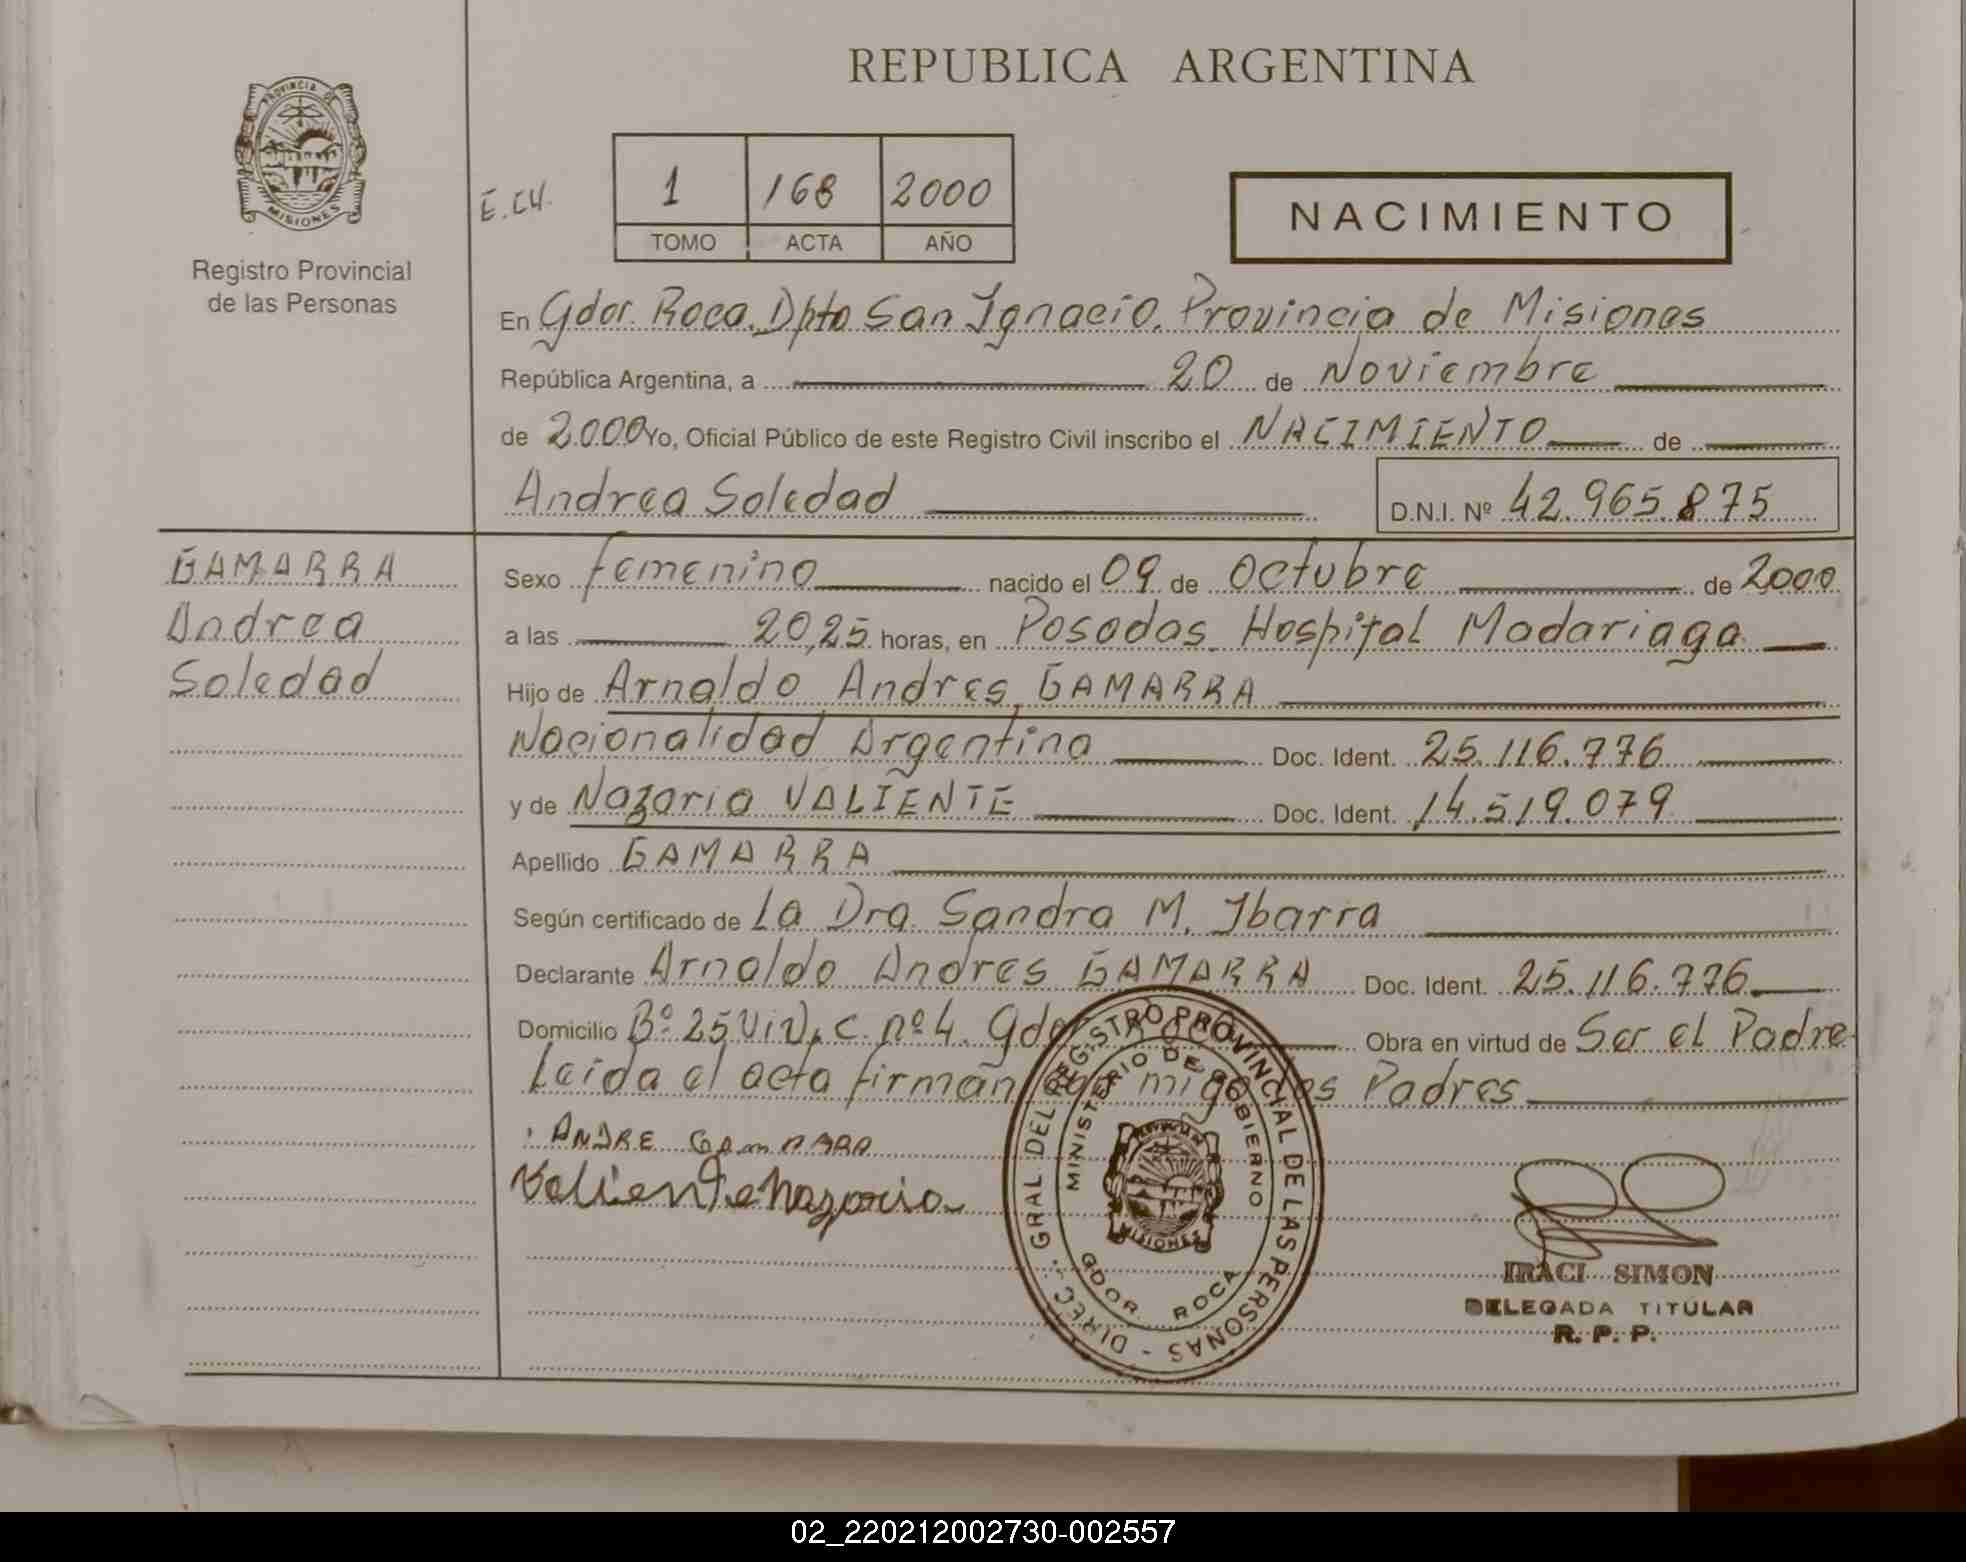 REPUBLICA ARGENTINA
PROVINCIA DE
MISIONES
Registro Provincial
de las Personas
1 168 2000
TOMO ACTA AÑO
NACIMIENTO
En Gdor. Roca. Dpto San Ignacio. Provincia de Misiones
República Argentina, a 20 de Noviembre
de 2.000 Yo, Oficial Público de este Registro Civil inscribo el NACIMIENTO de
Andrea Soledad D.N.I. Nº 42.965.875
GAMARRA
Andrea
Soledad
Sexo femenino nacido el 09 de Octubre de 2000
a las 20,25 horas, en Posadas. Hospital Madariaga
Hijo de Arnaldo Andres GAMARRA
Nacionalidad Argentina Doc. Ident. 25.116.776
y de Nazaria VALIENTE Doc. Ident. 14.519.079
Apellido GAMARRA
Según certificado de La Dra. Sandra M. Ibarra
Declarante Arnaldo Andres GAMARRA Doc. Ident. 25.116.776
Domicilio Bº 25 Viv. C. nº 4. Gdor Roca Obra en virtud de Ser el Padre
Leida el acta firman con migo los Padres
ANDRE GAMARRA
Valiente Nazaria
DIREC. GRAL. DEL REGISTRO PROVINCIAL DE LAS PERSONAS -
MINISTERIO DE GOBIERNO
MISIONES
GDOR. ROCA
IRACI SIMON
DELEGADA TITULAR
R. P. P.
02_220212002730-002557